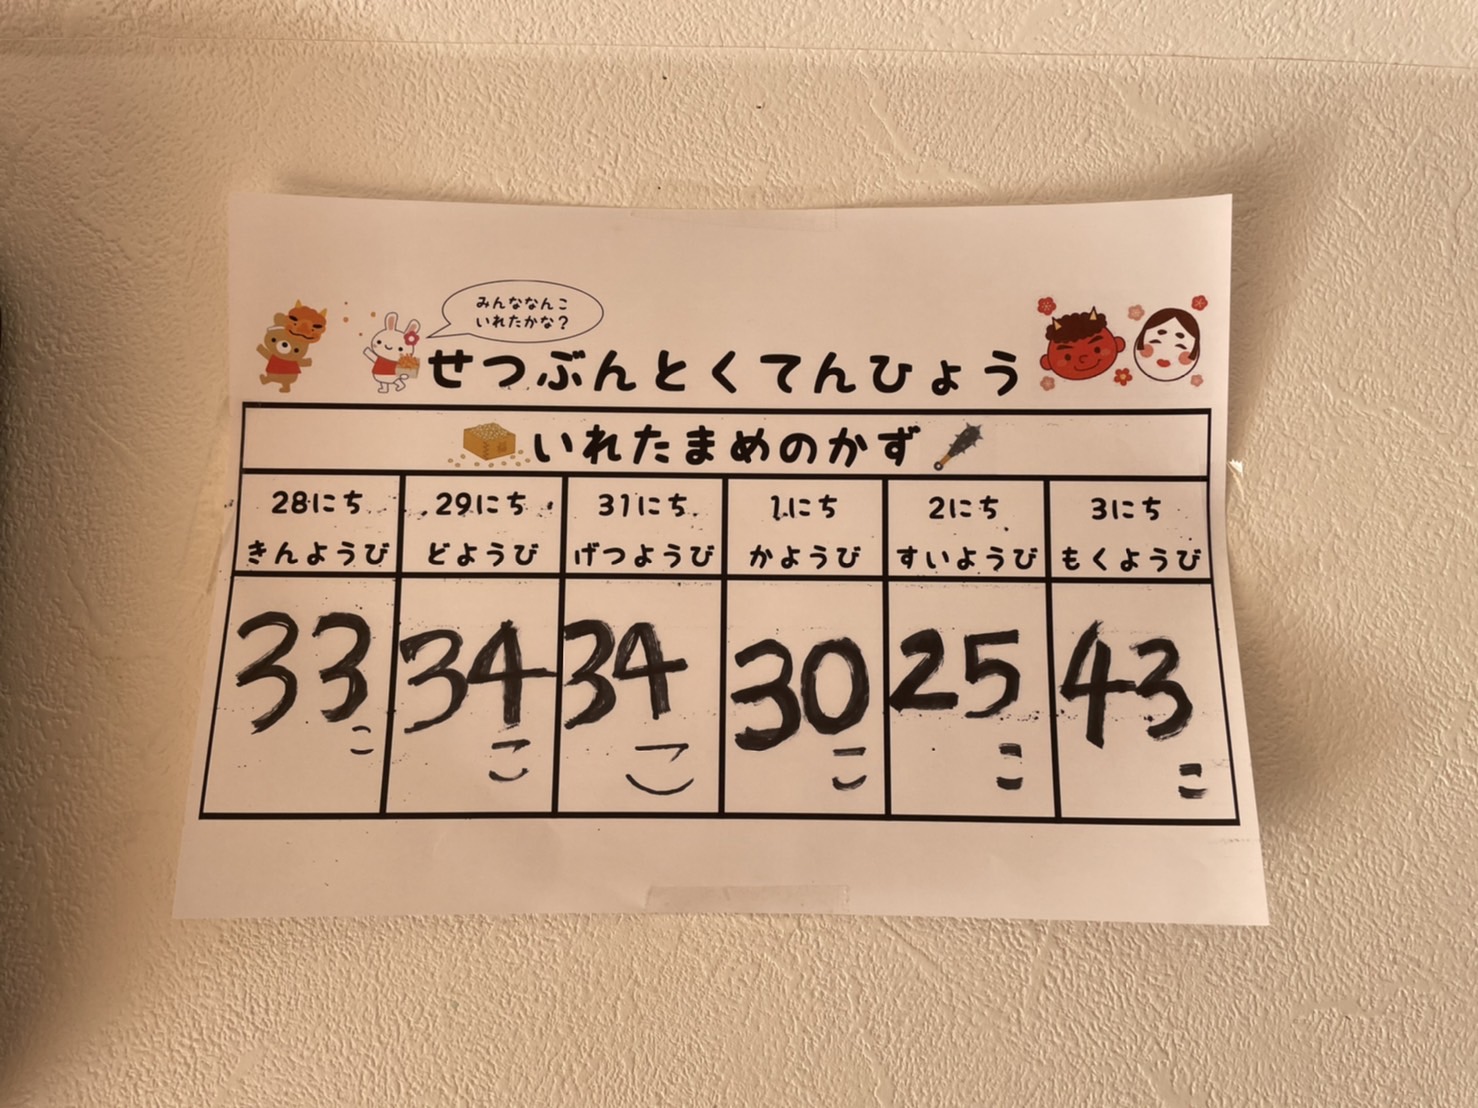 みんななんこ
いれたかな？
せつぶんとくてんひょう
いれたまめのかず
28にち 29にち 31にち 1にち 2にち 3にち
きんようび どようび げつようび かようび すいようび もくようび
33こ 34こ 34こ 30こ 25こ 43こ